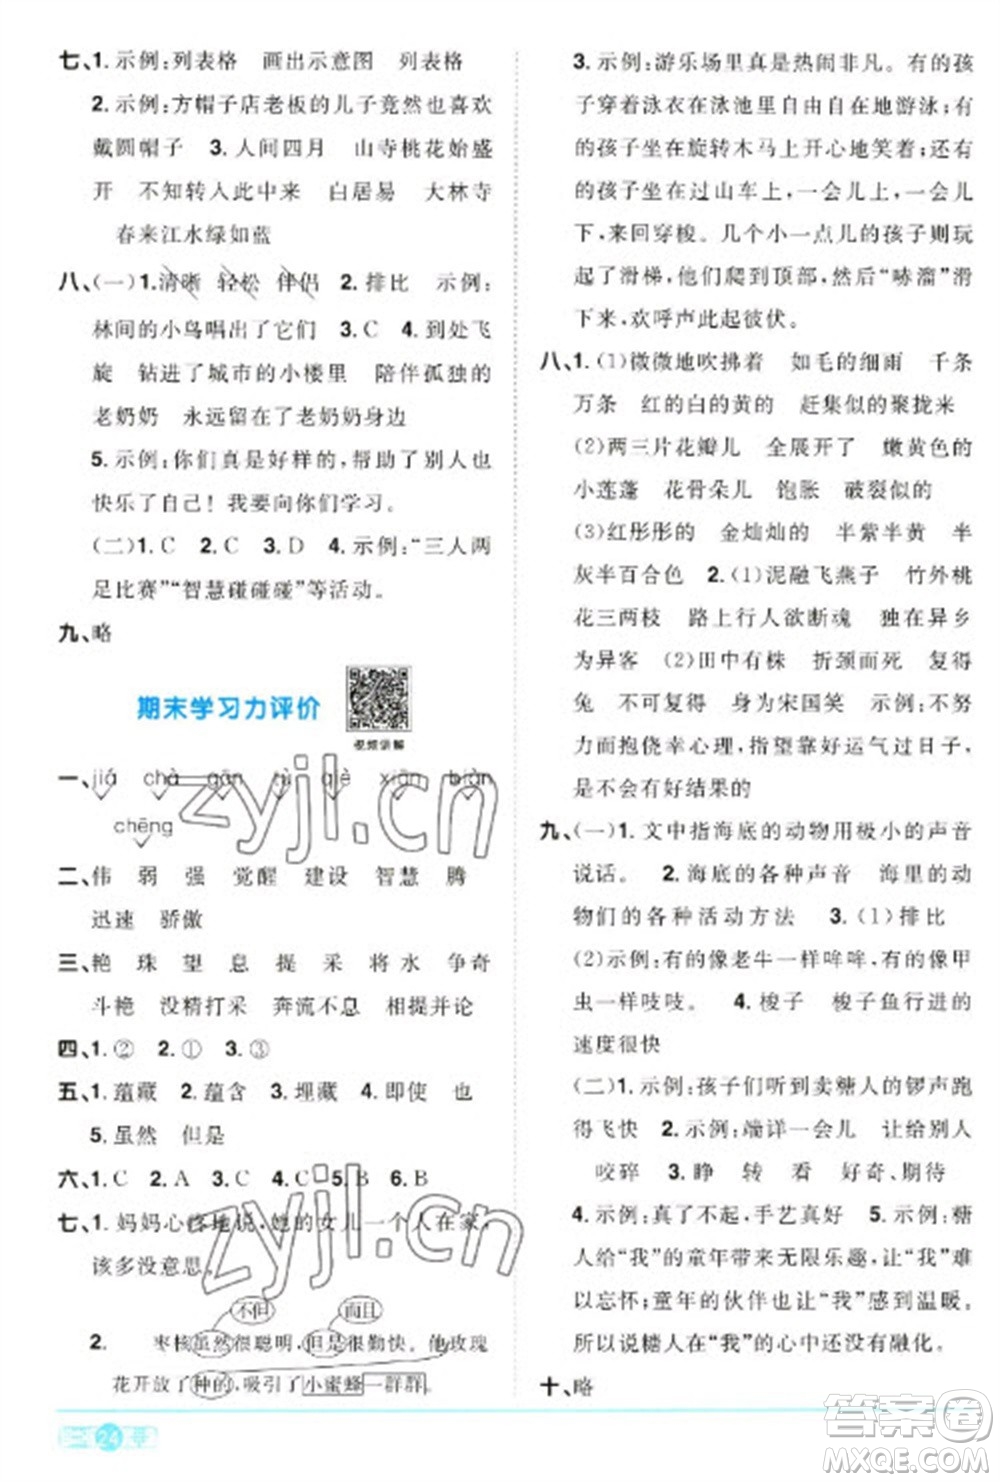 七、1. 示例:列表格　画出示意图　列表格
2. 示例:方帽子店老板的儿子竟然也喜欢
戴圆帽子　3. 人间四月　山寺桃花始盛
开　不知转入此中来　白居易　大林寺
春来江水绿如蓝
八、(一)1. 清晰　轻松　伴侣　2. 排比　示例:
林间的小鸟唱出了它们　3. C　4. 到处飞
旋　钻进了城市的小楼里　陪伴孤独的
老奶奶　永远留在了老奶奶身边
5. 示例:你们真是好样的,帮助了别人也
快乐了自己！我要向你们学习。
(二)1. C　2. C　3. D　4. 示例:“三人两
足比赛”“智慧碰碰碰”等活动。
九、略
期末学习力评价
视频讲解
一、jiá　chà　gān　　　què　xiān　biàn
chēng
二、伟　弱　强　觉醒　建设　智慧　腾
迅速　骄傲
三、艳　珠　望　息　提　采　将　水　争奇
斗艳　没精打采　奔流不息　相提并论
四、1. ②　2. ①　3. ③
五、1. 蕴藏　2. 蕴含　3. 埋藏　4. 即使　也
5. 虽然　但是
六、1. C　2. A　3. C　4. C　5. B　6. B
七、1. 妈妈心疼地说,她的女儿一个人在家,
该多没意思。
不但　而且
2. 枣核虽然很聪明,但是很勤快。他玫瑰
花开放了种的,吸引了小蜜蜂一群群。
24
3. 示例:游乐场里真是热闹非凡。有的孩
子穿着泳衣在泳池里自由自在地游泳;有
的孩子坐在旋转木马上开心地笑着;有
的孩子坐在过山车上,一会儿上,一会儿
下,来回穿梭。几个小一点儿的孩子则玩
起了滑梯,他们爬到顶部,然后“哧溜”滑
下来,欢呼声此起彼伏。
八、1. (1)微微地吹拂着　如毛的细雨　千条
万条　红的白的黄的　赶集似的聚拢来
(2)两三片花瓣儿　全展开了　嫩黄色的
小莲蓬　花骨朵儿　饱胀　破裂似的
(3)红彤彤的　金灿灿的　半紫半黄　半
灰半百合色　2. (1)泥融飞燕子　竹外桃
花三两枝　路上行人欲断魂　独在异乡
为异客　(2)田中有株　折颈而死　复得
兔　而身为宋国笑　示例:不努力劳动,
而抱侥幸心理,指望靠好运气过日子,
是不会有好结果的
九、(一)1. 文中指海底的动物用极小的声音
说话。　2. 海底的各种声音　海里的动
物们的各种活动方法　3. (1)排比
(2)示例:有的像老牛一样哞哞,有的像甲
虫一样吱吱。　4. 梭子　梭子鱼行进的
速度很快
(二)1. 示例:孩子们听到卖糖人的锣声跑
得飞快　2. 示例:端详一会儿　让给别人
咬碎　3. 睁　转　看　好奇、期待
4. 示例:真了不起,手艺真好　5. 示例:糖
人给“我”的童年带来无限乐趣,让“我”难
以忘怀;童年的伙伴也让“我”感到温暖。
所以说糖人在“我”的心中还没有融化。
十、略
zyjl.cn
zyjl.cn
答案圈
MXQE.COM